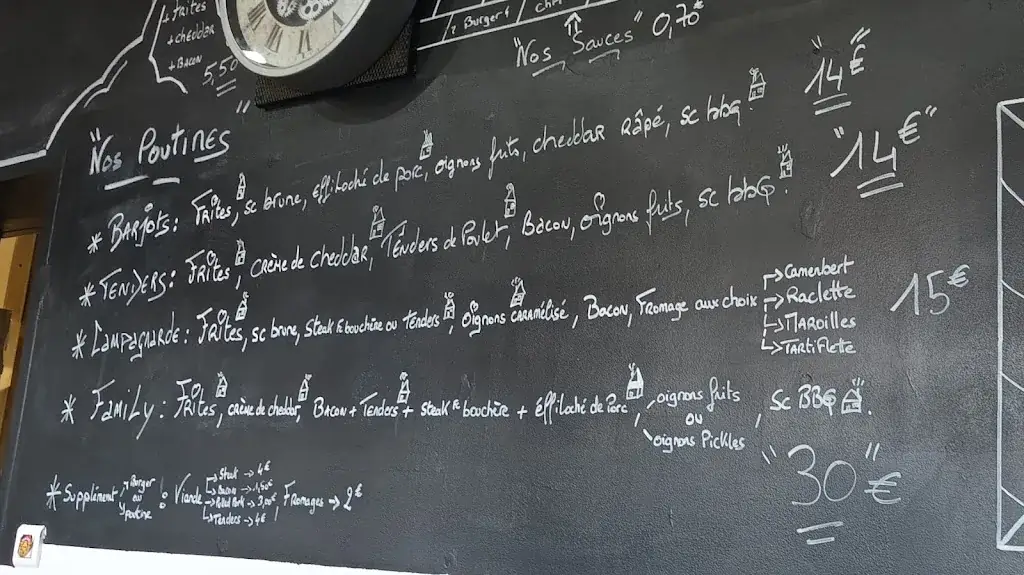 + FRites
+ cheddar
+ Bacon
5,50
Burger
"Nos Sauces" 0,70€
"Nos Poutines"
"14€"
* Barjots: Frites, sc brune, effiloché de porc, oignons frits, cheddar Râpé, sc bbq
"14€"
* Tenders: Frites, crème de cheddar, Tenders de Poulet, Bacon, oignons frits, sc bbQ.
* Campagnarde: Frites, sc brune, Steak bouchère ou Tenders, Oignons caramélisé, Bacon, Fromage aux choix
Camenbert
Raclette
Maroilles
Tartiflette
15€
* Family: Frites, crème de cheddar, Bacon + Tenders + steak bouchère + éffiloché de Porc, oignons frits
ou
oignons Pickles, Sc BBQ.
"30"€
* Supplément Burger
ou
poutine : Viande
Steak → 4€
Bacon → 1,50€
Pulled Pork → 3,00€
Tenders → 4€, Fromages → 2€